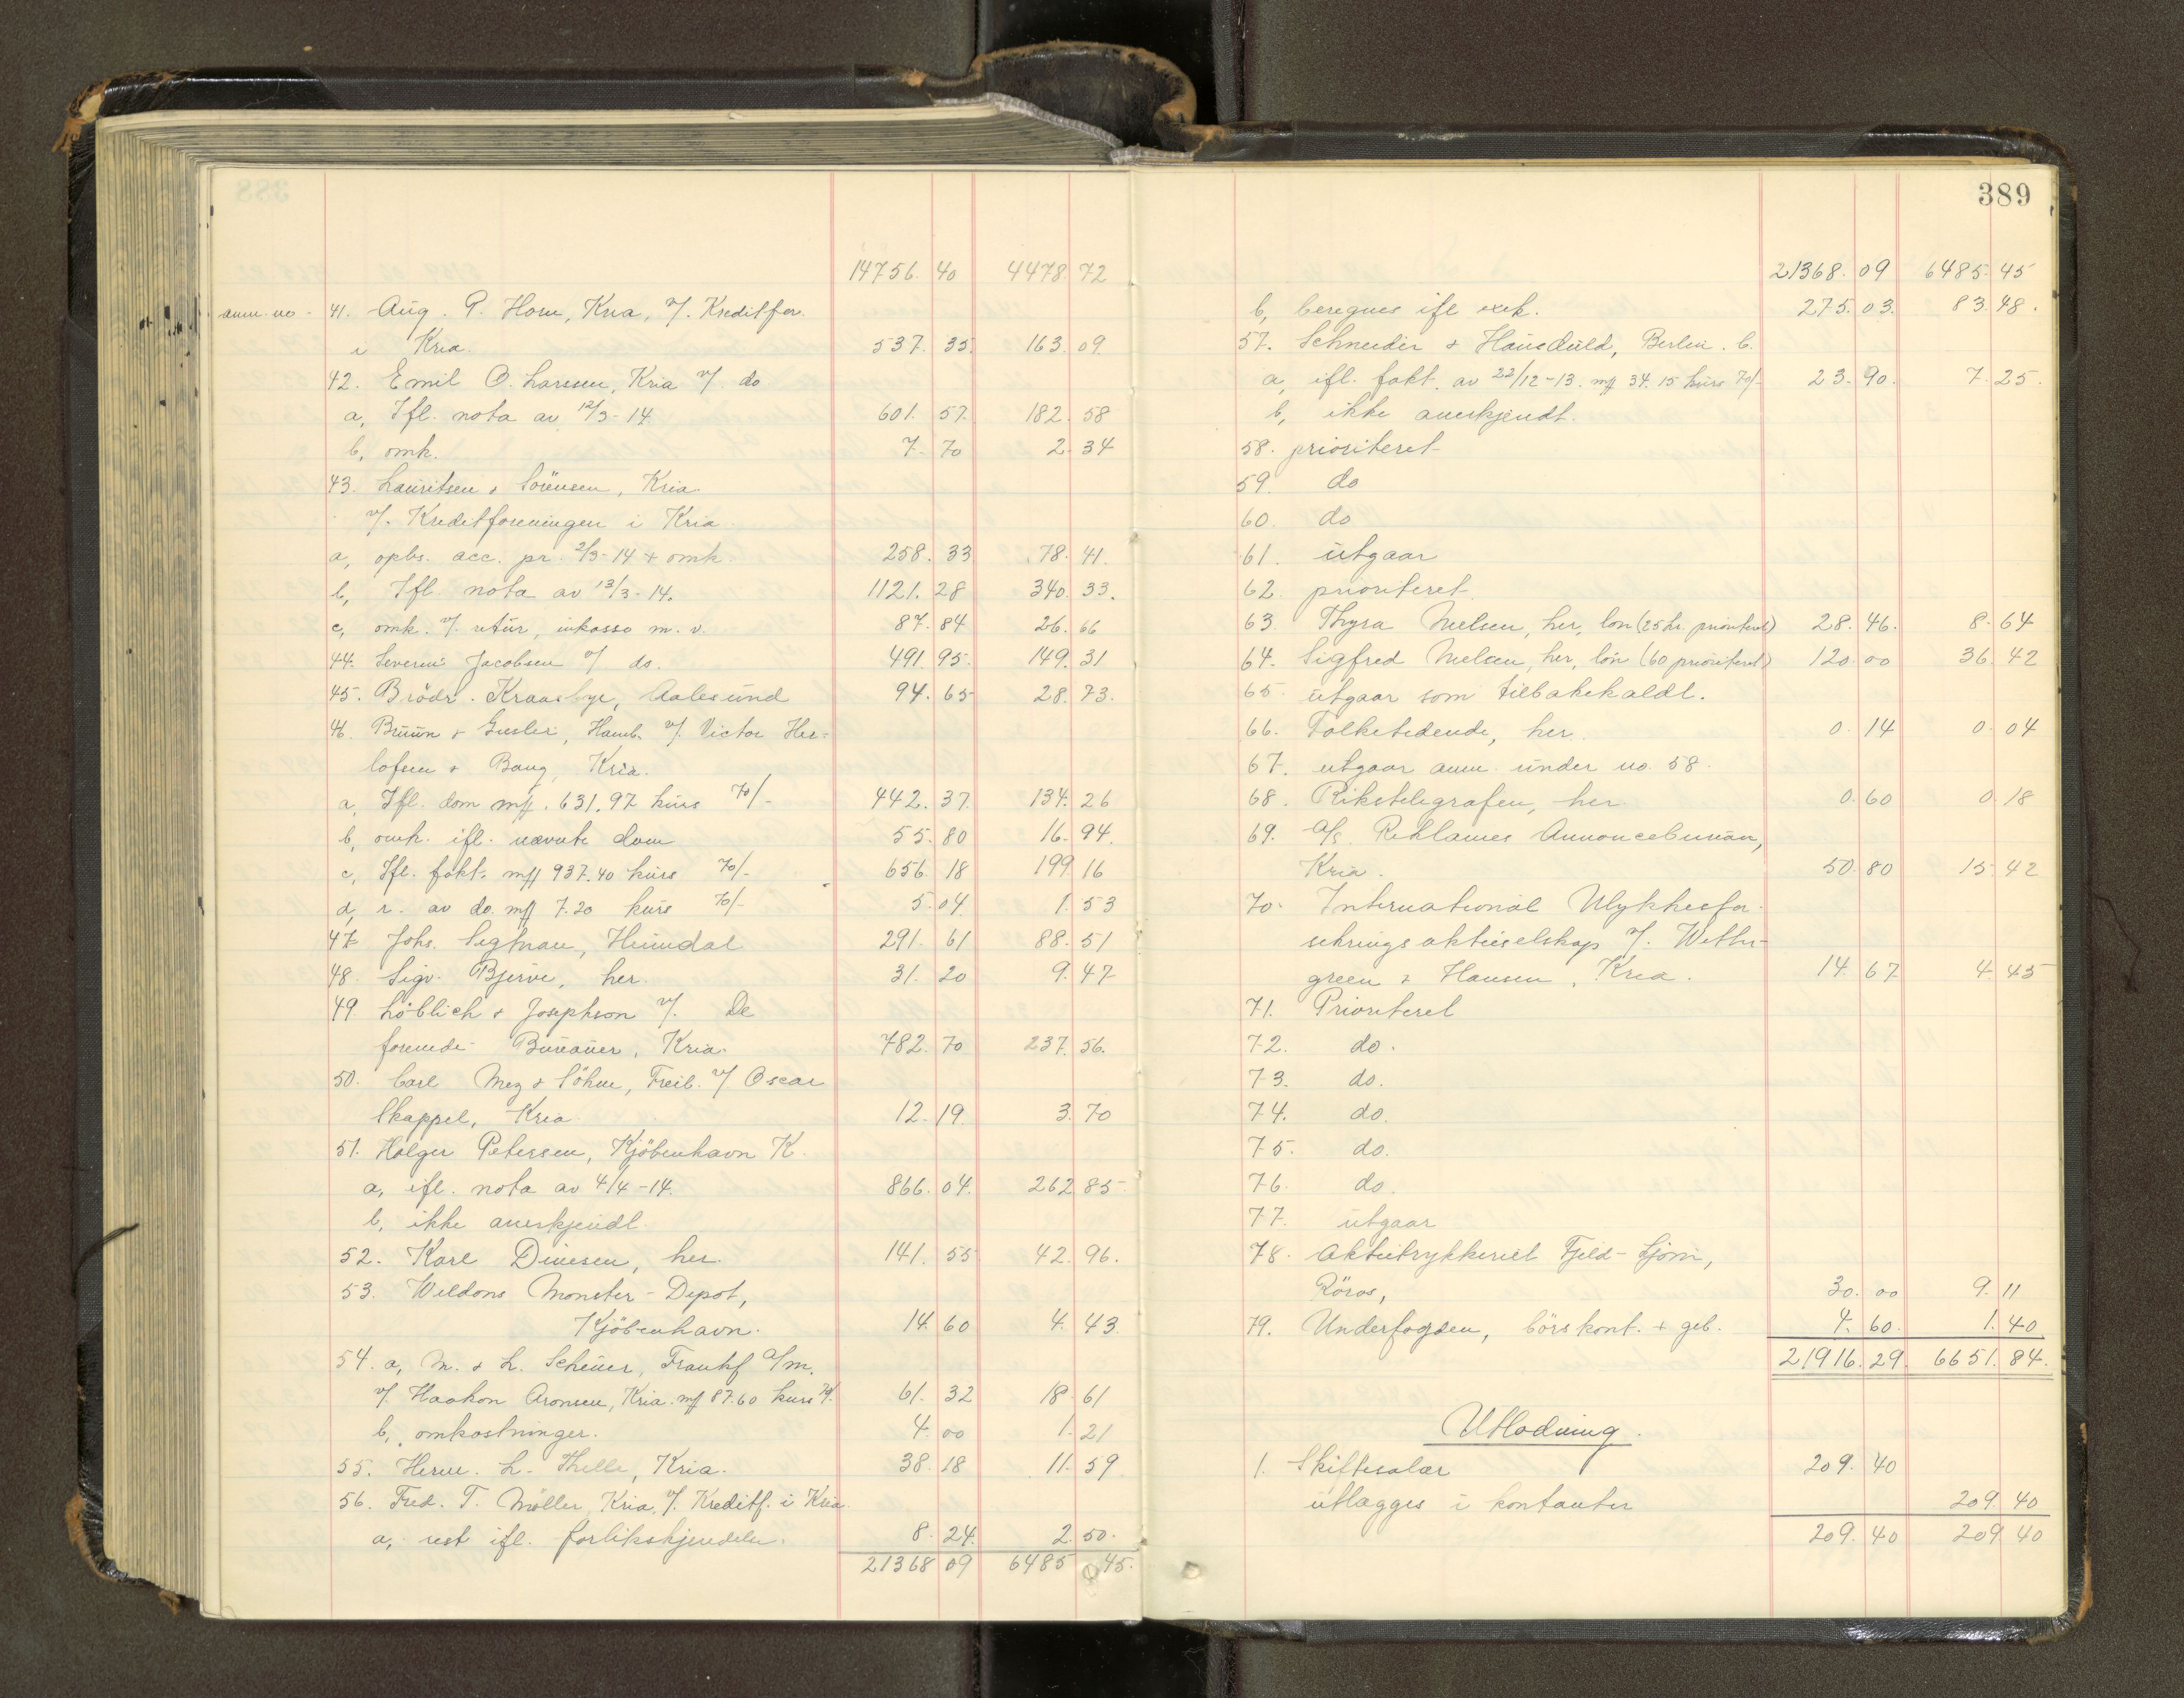 14756. 40 4478. 72
anm. no. 41. Aug. P. Horn, Kria, v/. Kreditfor.
i Kria. 537. 35. 163. 09.
42. Emil O. Larssen, Kria v/. do
a, Ifl. nota av 12/3-14. 601. 57. 182. 58
b, omk. 7. 70 2. 34
43. Lauritsen & Sörensen, Kria.
v/. Kreditforeningen i Kria.
a, opbs. acc. pr. 2/3-14 + omk. 258. 33 78. 41.
b, Ifl. nota av 13/3-14. 1121. 28 340. 33.
c, omk. v/. retur, inkasso m. v. 87. 84 26. 66
44. Severin Jacobsen v/ do. 491. 95. 149. 31
45. Brödr. Kraasbye, Aalesund 94. 65 28. 73.
46. Bruun & , Hamb. v/. Victor Her-
lofsen & Bang, Kria.
a, Ifl. dom mf. 631.97 kurs 70/- 442. 37. 134. 26
b, omk. ifl. nævnte dom 55. 80 16. 94.
c, Ifl. fakt. mf 937.40 kurs 70/- 656. 18 199 16
d, r. av do. mf 7.20 kurs 70/- 5. 04 1. 53
47. Johs. , Heimdal 291. 61 88. 51
48. Sigv. Bjerve, her. 31. 20 9. 47
49. Löblich & Josephson v/. De
forenede Bureauer, Kria. 782. 70 237. 56.
50. Carl Mez & Söhne, Freib. v/ Oscar
Skappel, Kria. 12. 19. 3. 70
51. Holger Petersen, Kjöbenhavn K.
a, ifl. nota av 4/4-14. 866. 04. 262 85
b, ikke anerkjendt.
52. Karl Dinesen, her. 141. 55 42. 96.
53. Weldons Monster-Depot,
Kjöbenhavn. 14. 60 4. 43.
54. a, M. & L. Scheuer, Frankf a/m.
v/. Haakon Aronsen, Kria. mf 87.60 kurs 70/. 61. 32 18. 61
b, omkostninger. 4. 00 1. 21
55. Herm. L. Thelle, Kria. 38. 18 11. 59
56. Fred. T. Möller, Kria, v/. Kreditf. i Kria.
a, rest ifl. forlikskjendelse. 8. 24. 2. 50.
21368 09 6485 45.
389
21368. 09 6485. 45
b, beregnes ifl exek. 275. 03. 83. 48.
57. Schneider & , Berlin. C.
a, ifl. fakt. av 22/12-13. mf 34.15 kurs 70/- 23. 90. 7. 25.
b, ikke anerkjendt.
58. prioriteret
59. do
60. do
61. utgaar
62. prioriteret.
63. Thyra Nielsen, her, lön (25 kr. prioriteret) 28. 46. 8. 64
64. Sigfred Nielsen, her, lön (60 prioriteret) 120. 00 36. 42
65. utgaar som tilbakekaldt.
66. Folketidende, her. 0. 14 0. 04
67. utgaar anm. under no. 58.
68. Rikstelegrafen, her. 0. 60 0. 18
69. A/S Reklames Annoncebureau,
Kria. 50. 80 15. 42
70. International Ulykkesfor-
sikringsaktieselskap v/. Wetter-
green & Hansen, Kria. 14. 67 4. 45
71. Prioriteret
72. do.
73. do.
74. do.
75. do.
76. do.
77. utgaar
78. Aktietrykkeriet Fjeld-Ljom,
Röros, 30. 00 9. 11
79. Underfogden, börskont. + geb. 4. 60. 1. 40
21916. 29. 6651. 84.
Utlodning.
1. Skiftesalær 209. 40
utlægges i kontanter 209. 40
209. 40 209 40